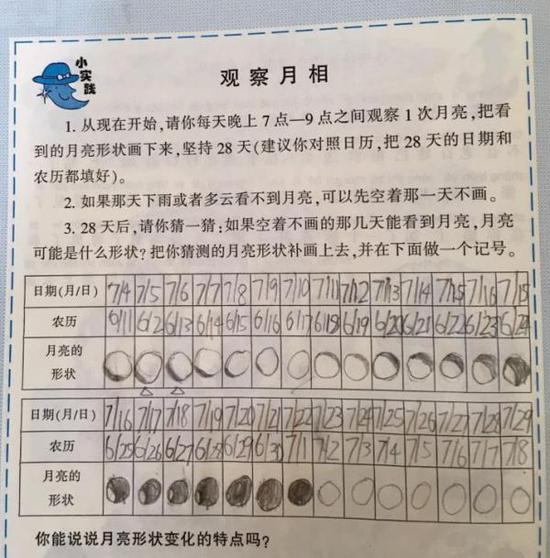 小实践
观察月相
1. 从现在开始,请你每天晚上7点—9点之间观察1次月亮,把看
到的月亮形状画下来,坚持28天(建议你对照日历,把28天的日期和
农历都填好)。
2. 如果那天下雨或者多云看不到月亮,可以先空着那一天不画。
3. 28天后,请你猜一猜:如果空着不画的那几天能看到月亮,月亮
可能是什么形状?把你猜测的月亮形状补画上去,并在下面做一个记号。
日期(月/日) 7/4 7/5 7/6 7/7 7/8 7/9 7/10 7/11 7/12 7/13 7/14 7/15 7/16 7/15
农历 6/11 6/2 6/13 6/14 6/15 6/16 6/17 6/18 6/19 6/20 6/21 6/22 6/23 6/24
月亮的
形状
日期(月/日) 7/16 7/17 7/18 7/19 7/20 7/21 7/22 7/23 7/24 7/25 7/26 7/27 7/28 7/29
农历 6/25 6/26 6/27 6/28 6/29 6/30 7/1 7/2 7/3 7/4 7/5 7/6 7/7 7/8
月亮的
形状
你能说说月亮形状变化的特点吗?